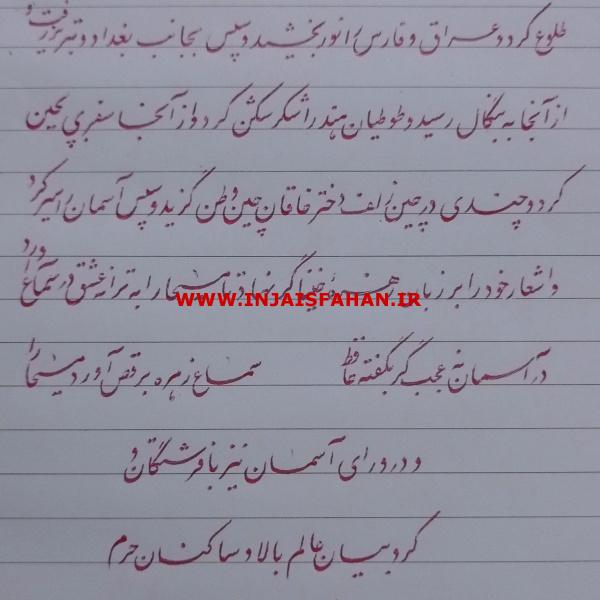 طلوع کرد و عراق و فارس را نور بخشید و سپس بجانب بغداد و تبریز رفت و
از آنجا به بنگال رسید و طوطیان هند را شکر شکن کرد و از آنجا سفری بچین
کرد و چندی در چین زلف دختر خاقان چین وطن گزید و سپس آسمان را سیر کرد
و اشعار خود را بر زبان زهره خنیاگر نهاد تا مسیحا را به ترانه عشق در سماع آورد
WWW.INJAISFAHAN.IR
در آسمان نه عجب گر بگفته حافظ سماع زهره برقص آورد مسیحا را
و در ورای آسمان نیز با فرشتگان و
کروبیان عالم بالا و ساکنان حرم